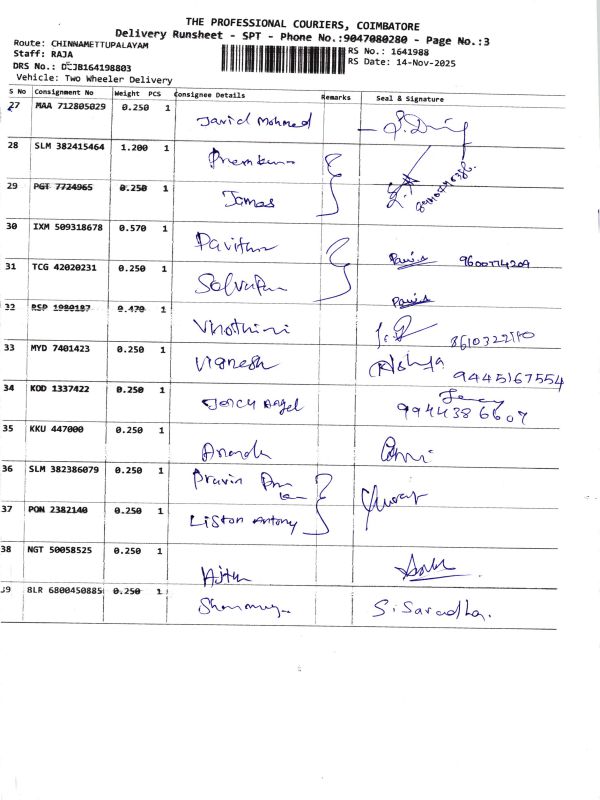 THE PROFESSIONAL COURIERS, COIMBATORE
Delivery Runsheet - SPT - Phone No.:9047080280 - Page No.:3
Route: CHINNAMETTUPALAYAM
Staff: RAJA
RS No.: 1641988
DRS No.: DEJB164198803
RS Date: 14-Nov-2025
Vehicle: Two Wheeler Delivery
S No Consignment No Weight PCS Consignee Details Remarks Seal & Signature
27 MAA 712805029 0.250 1 Javid Mohmed
28 SLM 382415464 1.200 1 Premkumar
29 PGT 7724965 0.250 1 Jamas
30 IXM 509318678 0.570 1 Pavithra 9600774204
31 TCG 42020231 0.250 1
32 RSP 1980187 0.470 1 Vhothini 8610322110
33 MYD 7401423 0.250 1 Vignesh 9445167554
34 KOD 1337422 0.250 1 Jercy Angel 9944386607
35 KKU 447000 0.250 1
36 SLM 382386079 0.250 1 Pravin
37 PON 2382140 0.250 1 Liston Antony
38 NGT 50058525 0.250 1
39 BLR 6800450885 0.250 1 S. Saradha.